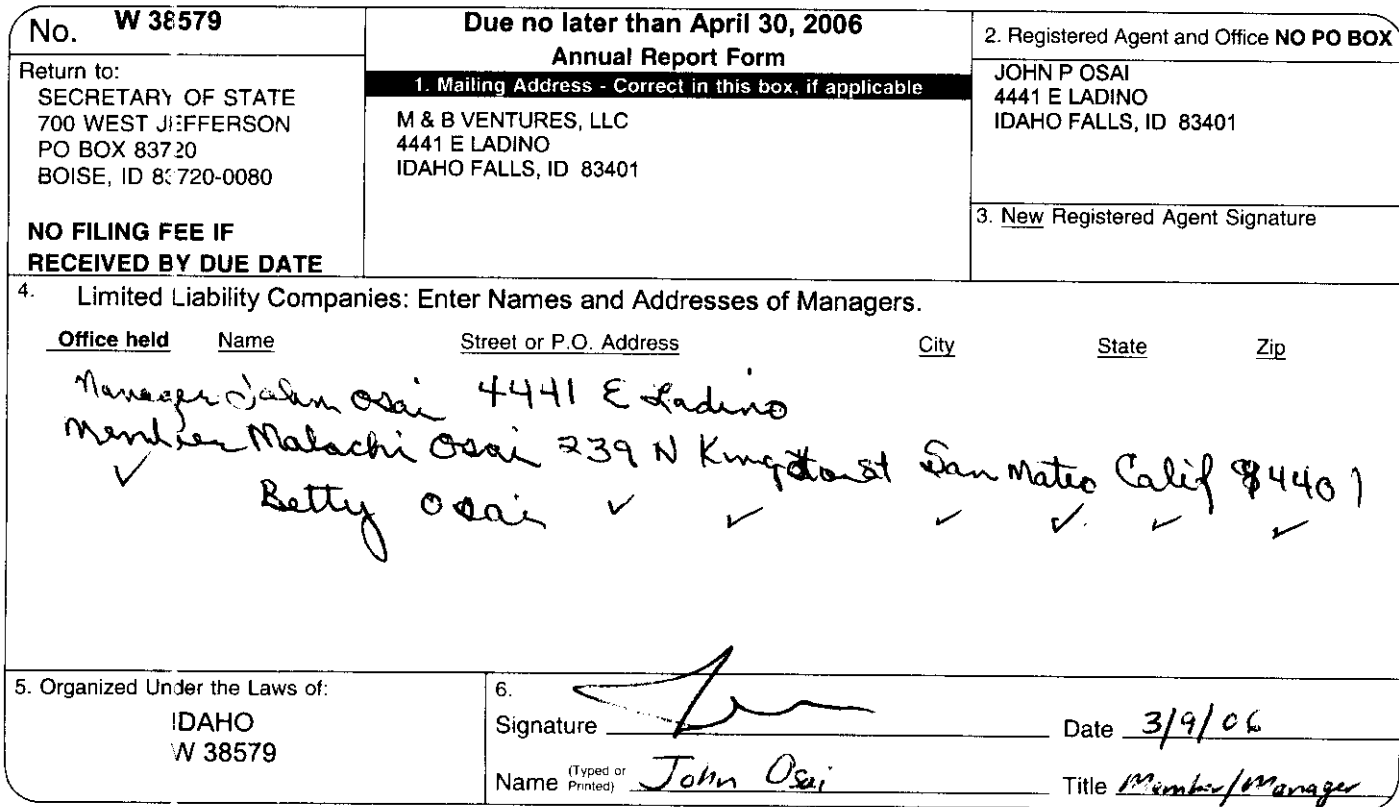 No. W 38579
Return to:
SECRETARY OF STATE
700 WEST JEFFERSON
PO BOX 83720
BOISE, ID 83720-0080
NO FILING FEE IF
RECEIVED BY DUE DATE
Due no later than April 30, 2006
Annual Report Form
1. Mailing Address - Correct in this box, if applicable
M & B VENTURES, LLC
4441 E LADINO
IDAHO FALLS, ID 83401
2. Registered Agent and Office NO PO BOX
JOHN P OSAI
4441 E LADINO
IDAHO FALLS, ID 83401
3. New Registered Agent Signature
4. Limited Liability Companies: Enter Names and Addresses of Managers.
Office held Name Street or P.O. Address City State Zip
Manager John Osai 4441 E Ladino
Member Malachi Osai 239 N Kingston St San Mateo Calif 94401
Betty Osai
5. Organized Under the Laws of:
IDAHO
W 38579
6.
Signature
Date 3/9/06
Name (Typed or Printed) John Osai
Title Member/Manager